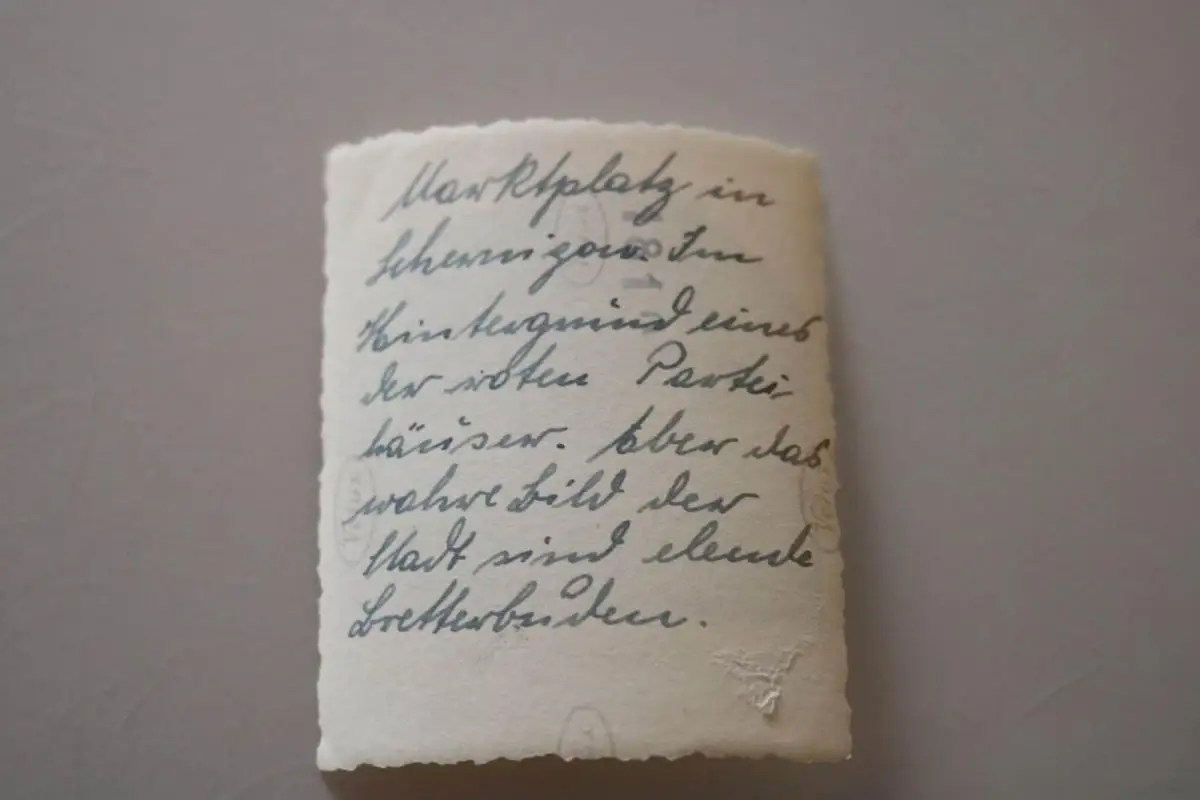 Marktplatz in
Schernigow. Im
Hintergrund eines
der roten Partei-
häuser. Aber das
wahre Bild der
Stadt sind elende
Bretterbuden.
Velox
Velox